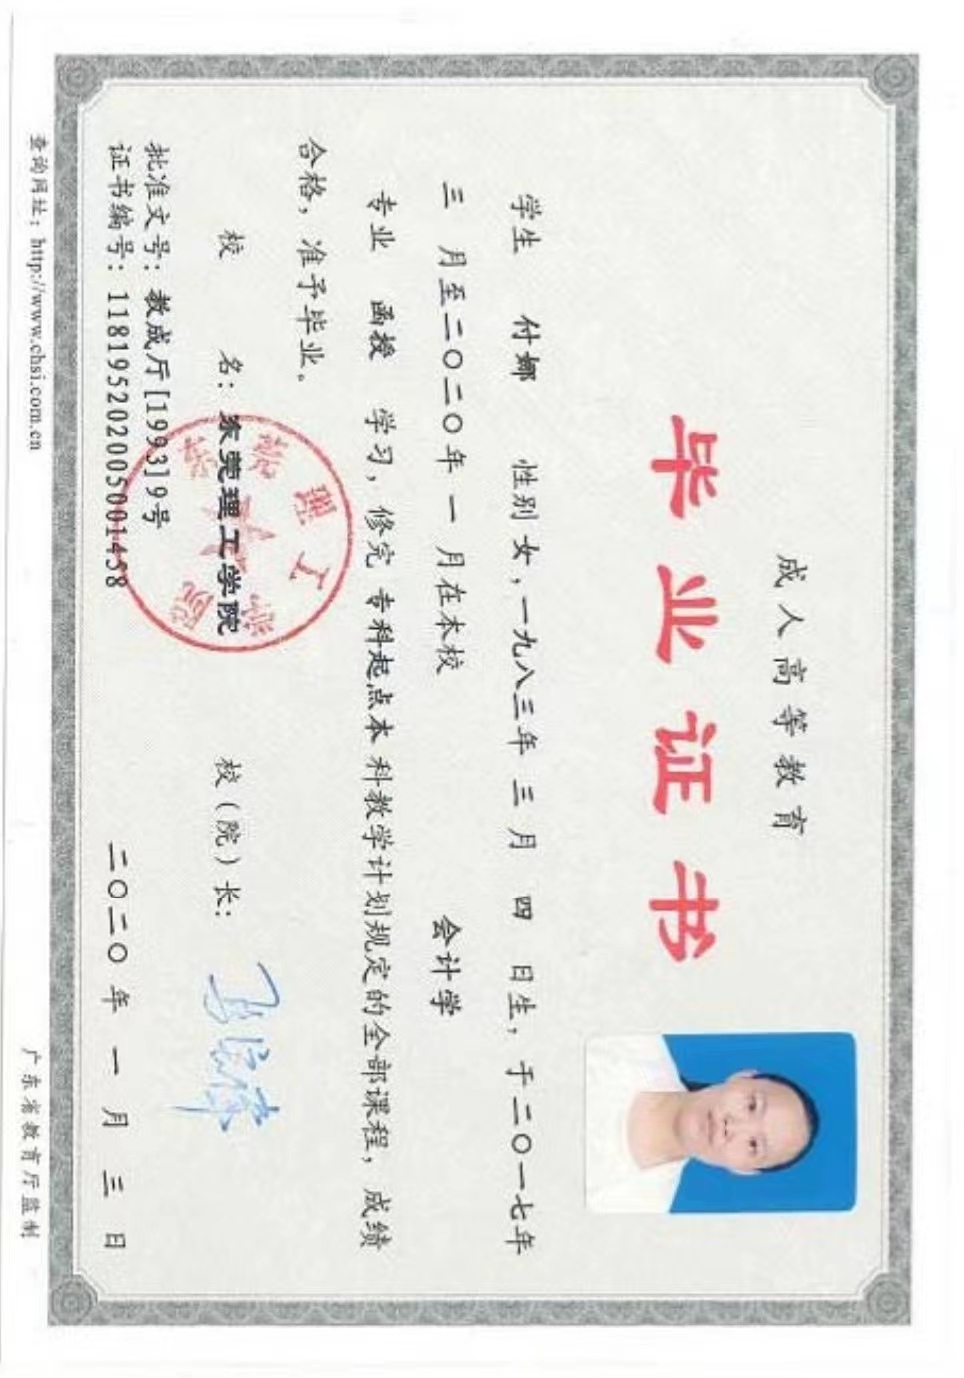 成人高等教育
毕业证书
学生 付娜 性别女，一九八三年 三月 四 日生，于二〇一七年
三 月至二〇二〇年 一 月在本校 会计学
专业 函授 学习，修完 专科起点本 科教学计划规定的全部课程，成绩
合格，准予毕业。
校 名：东莞理工学院 校（院）长：
批准文号：教成厅[1993]9号
证书编号：118195202005001458 二〇二〇年 一 月 三 日
查询网址：http://www.chsi.com.cn 广东省教育厅监制